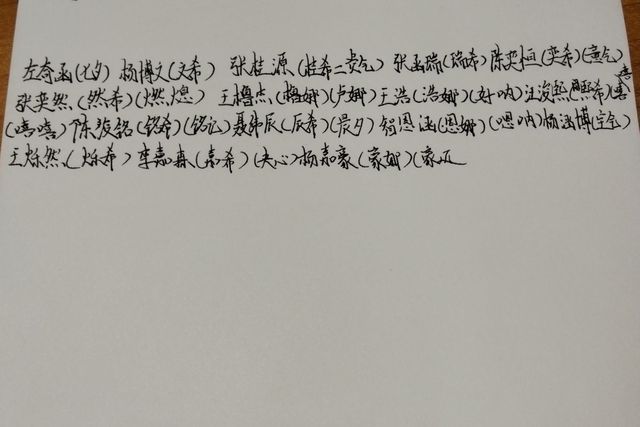 左奇函(七夕) 杨博文(文希) 张桂源(桂希二贵气) 张函瑞(瑞希) 陈奕恒(奕希)(意气)
张奕然(然希)(燃熄) 王橹杰(橹娜)(卢娜) 王浩(浩娜)(好呐) 汪浚熙(熙希)(嘻
(嘻嘻) 陈浚铭(铭希)(铭记) 聂玮辰(辰希)(晨夕) 智恩涵(恩娜)(嗯呐) 杨涵博(宝宝)
王烁然(烁希) 李嘉森(嘉希)(夹心) 杨嘉豪(豪娜)(豪